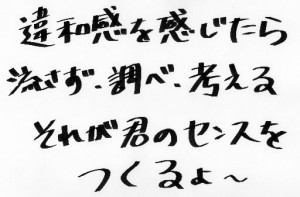 違和感を感じたら
流さず、調べ、考える
それが君のセンスを
つくるよ〜